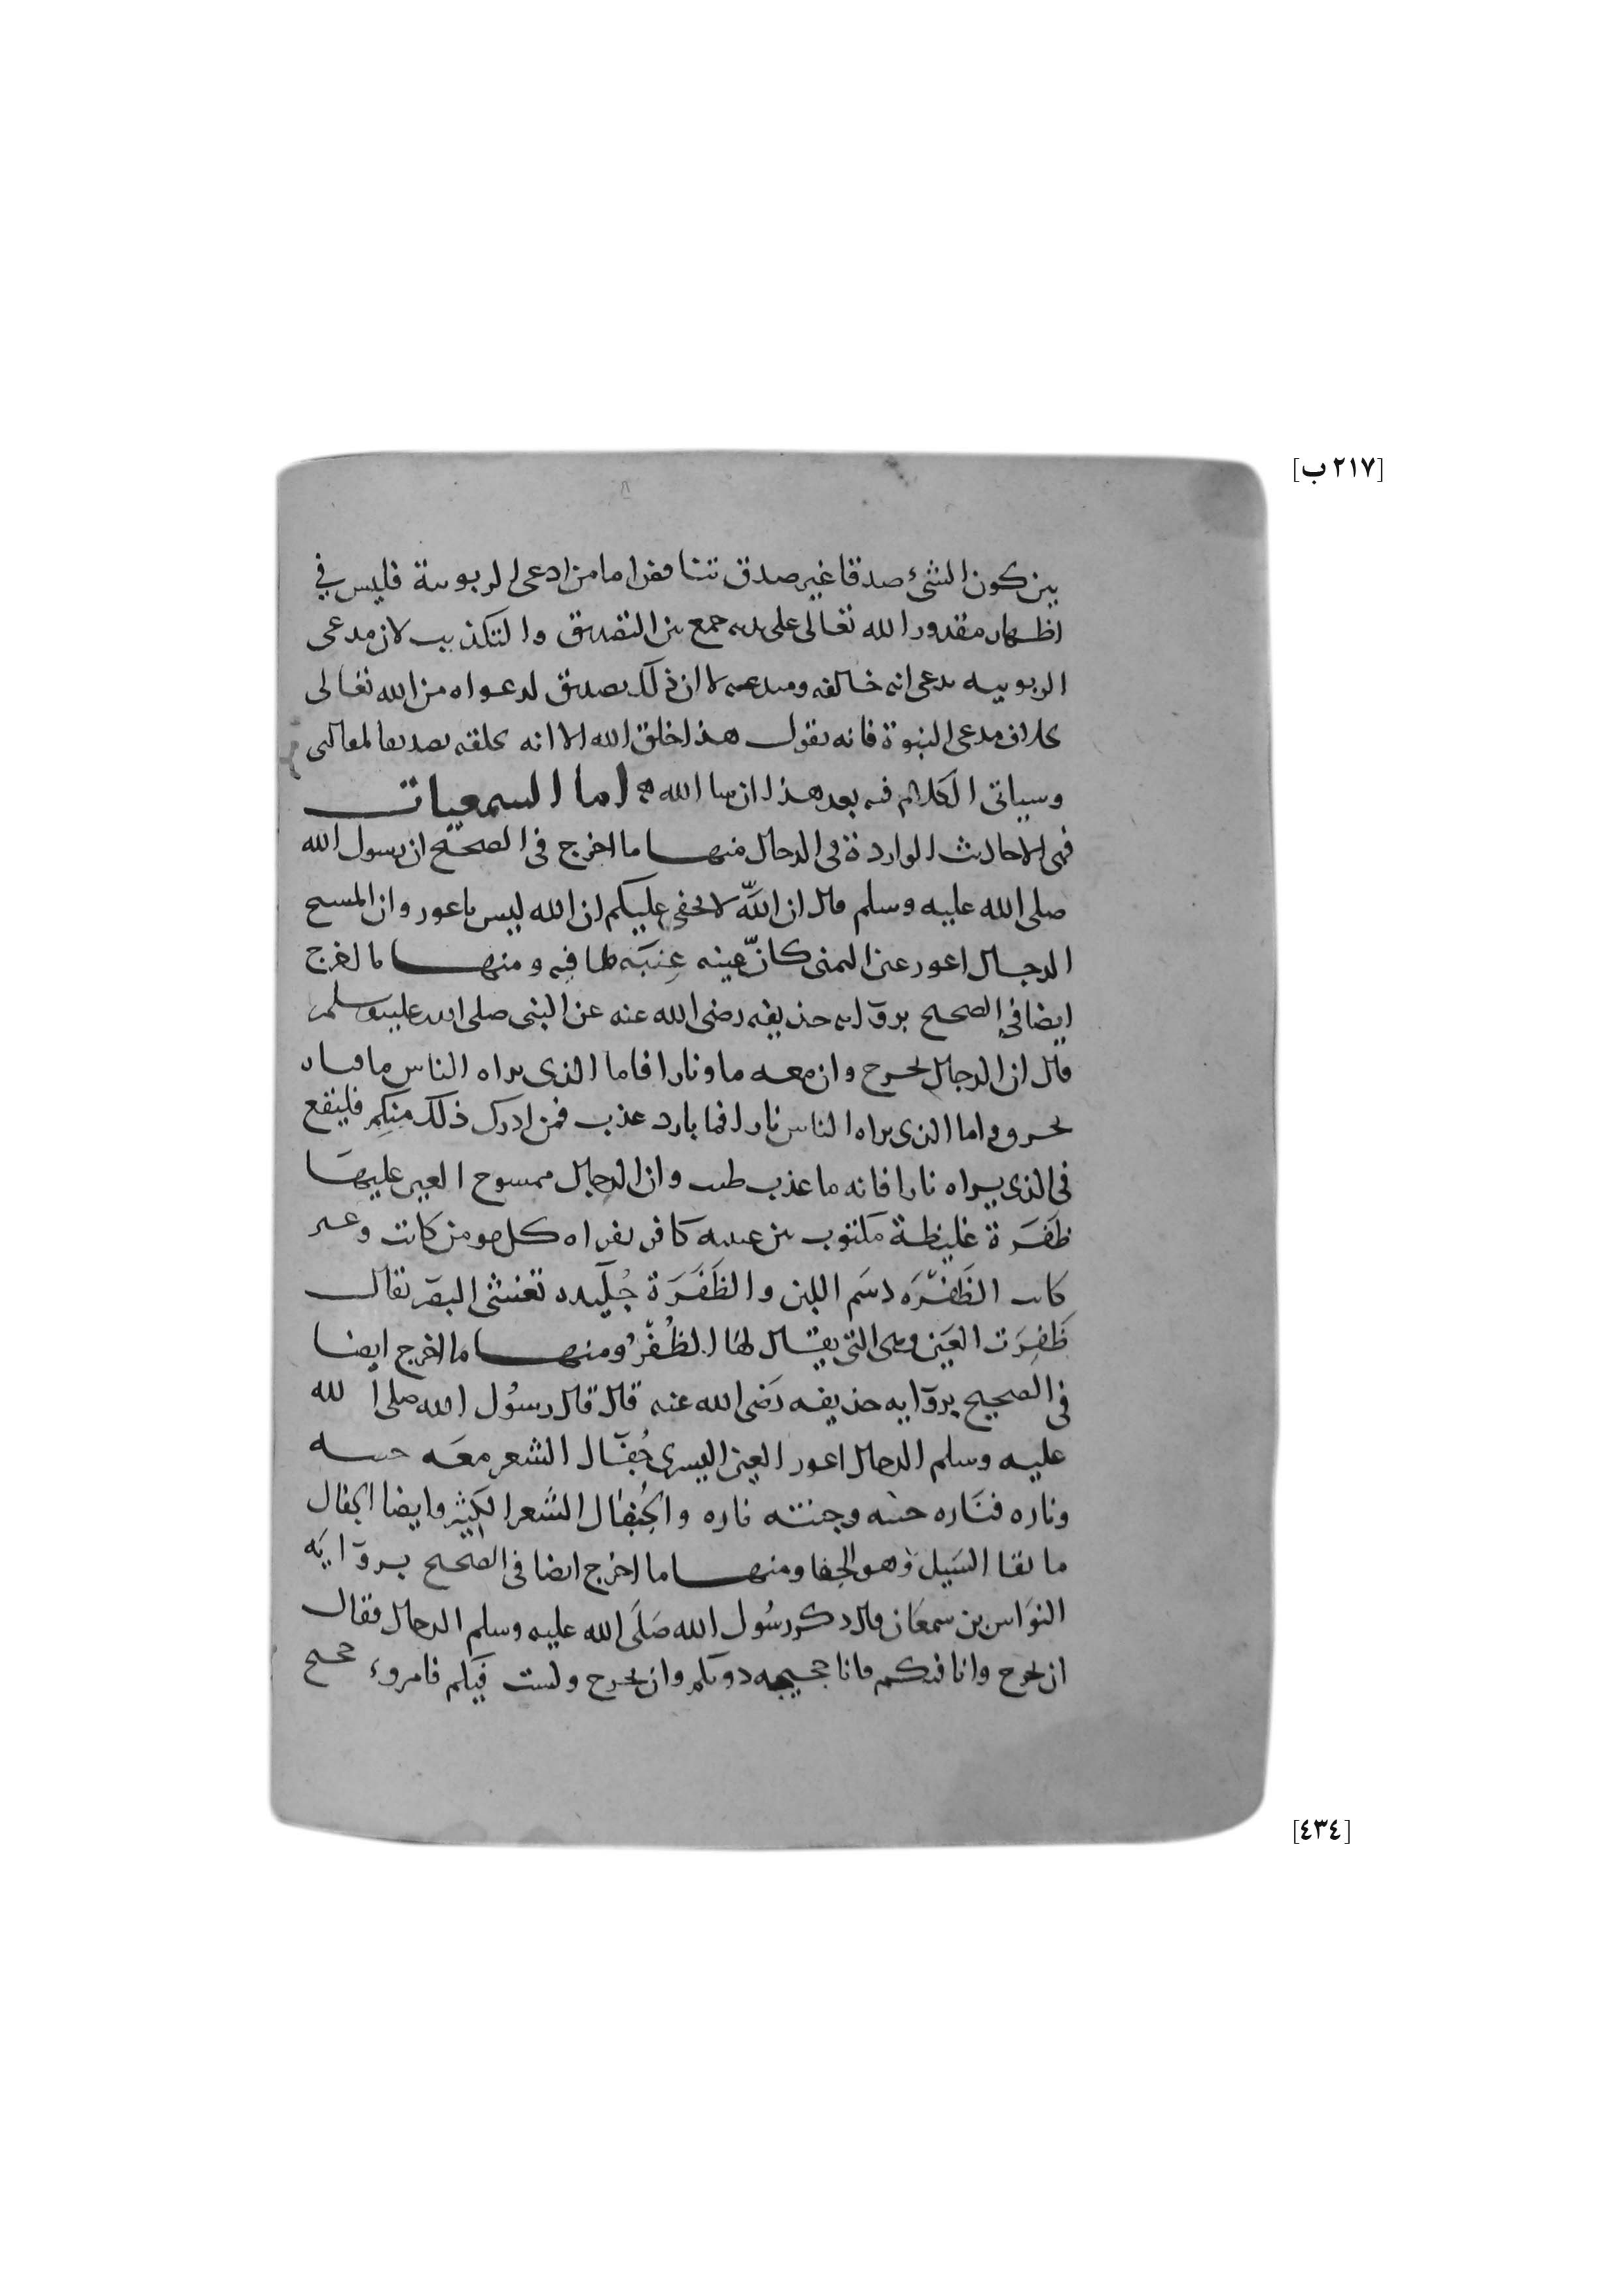 [٢١٧ ب]
بين كون الشيء صدقا غير صدق تناقض اما من ادعى الربوبية فليس في
اظهار مقدور الله تعالى على يديه جمع بين التصديق والتكذيب لان مدعى
الربوبيه يدعى انه خالقه ومبدعه لا ان ذلك تصديق لدعواه من الله تعالى
بخلاف مدعى النبوة فانه يقول هذا خلق الله الا انه يخلقه تصديقا لمقالتى
وسياتى الكلام فيه بعد هذا ان شا الله اما السمعيات
فهى الاحاديث الواردة فى الدجال منها ما اخرج فى الصحيح ان رسول الله
صلى الله عليه وسلم قال ان الله لا يخفى عليكم ان الله ليس باعور وان المسيح
الدجال اعور عين اليمنى كانّ عينه عِنبَه طافيه ومنها ما اخرج
ايضا في الصحيح بروايه حذيفه رضى الله عنه عن النبى صلى الله عليه وسلم
قال ان الدجال يخرج وان معه ما ونارا فاما الذى يراه الناس ما فنار
تحرق واما الذى يراه الناس نارا فما بارد عذب فمن ادرك ذلك منكم فليقع
فى الذى يراه نارا فانه ما عذب طيب وان الدجال ممسوح العين عليها
ظَفَرَة غليظة مكتوب بين عينيه كافر يقراه كل مومن كاتب وغير
كاتب الظَفَرَه دسَم اللبن والظَفَرَة جُلَيده تغشى البصر يقال
ظَفِرَت العَين وهى التى يقال لها الظُفْرُ ومنها ما اخرج ايضا
فى الصحيح بروايه حذيفه رَضى الله عنه قال قال رسُول الله صلى الله
عليه وسلم الدجال اعور العين اليسرى جُفَال الشعر معَه جنته
وناره فنَاره جنته وجنته ناره والجُفَال الشَعر الكثير وايضا الجفال
ما نفا السَيل وهو الجفا ومنها ما اخرج ايضا فى الصحيح بروايَه
النوَاس بن سمعَان قال ذكر رسُول الله صَلَى الله عليه وسلم الدجال فقال
ان يخرج وانا فيكم فانا حجيجه دونكم وان يخرج ولست فيكم فامروء حجيج
[٤٣٤]